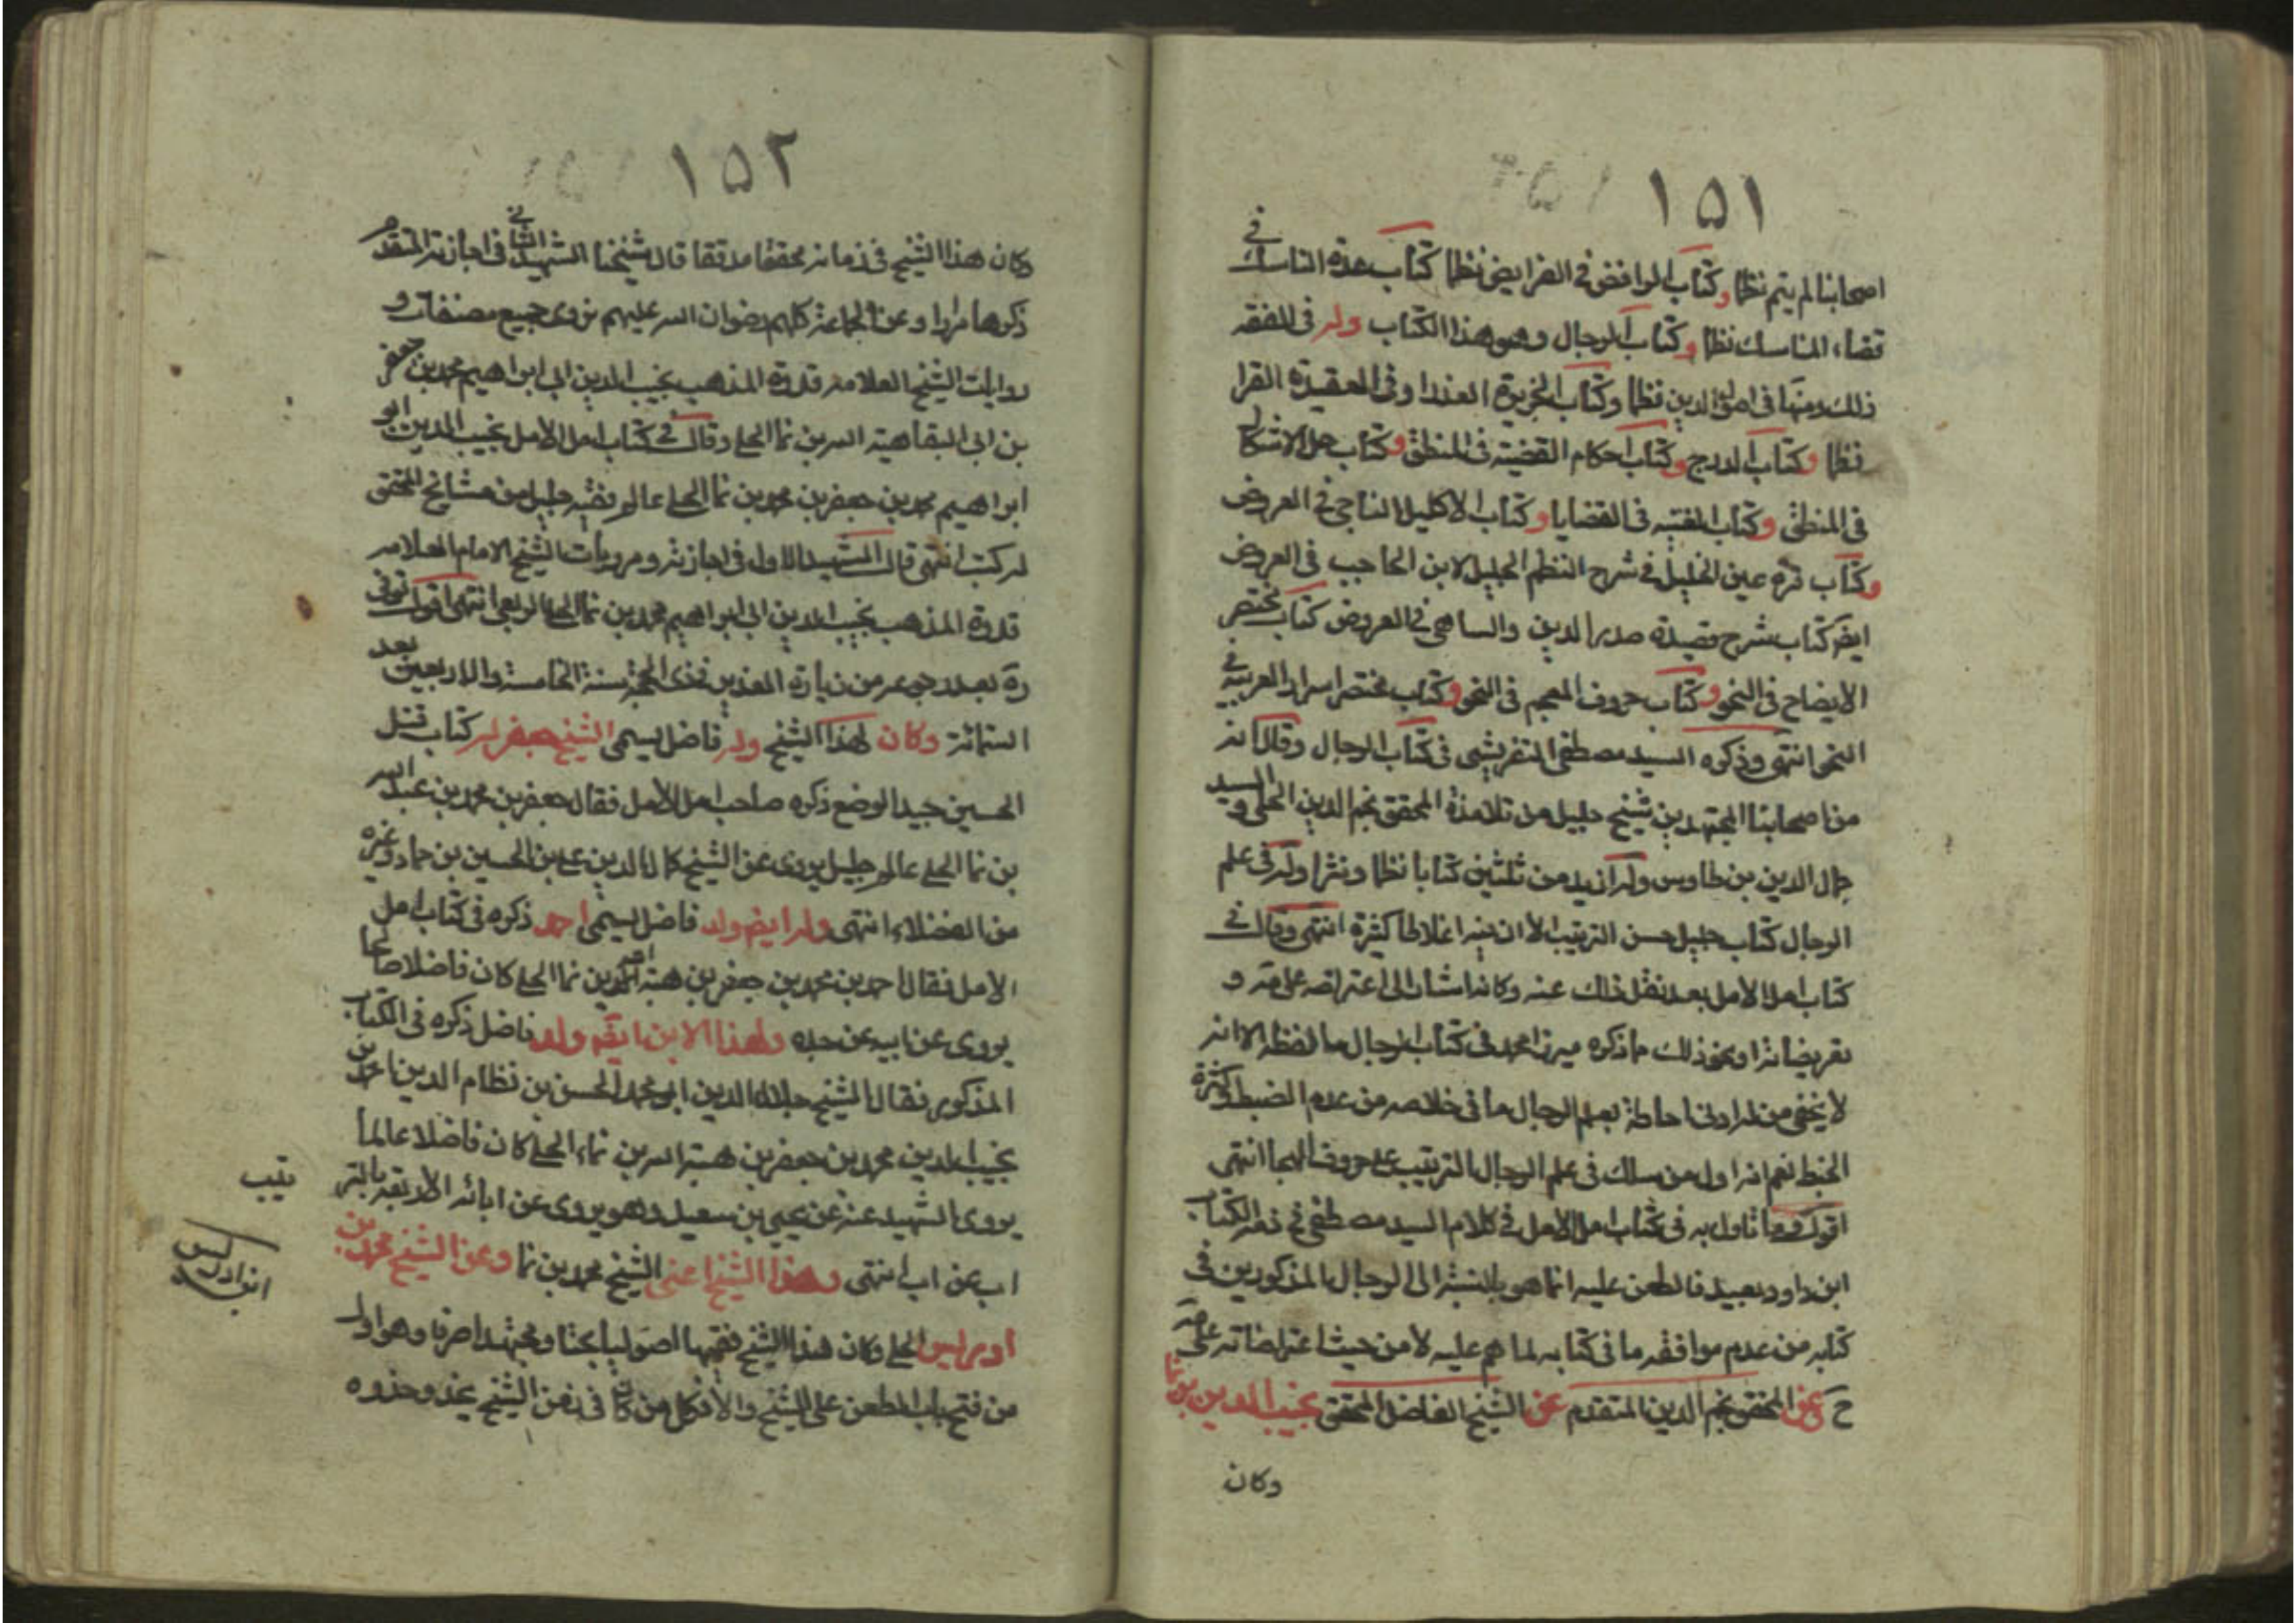 ١٥١
اصحابنا لم يتم نظما وكتاب الموافض فى الفرايض نظما كتاب عدة الناسك فى
قضاء المناسك نظما وكتاب الرجال وهو هذا الكتاب وله فى الفقه
ذلك ومنها فى اصول الدين نظما وكتاب الخريدة العذرا وفى العقيدة الغرا
نظما وكتاب الدرج وكتاب احكام القضية فى المنطق وكتاب حل الاشكال
فى المنطق وكتاب البغيه فى القضايا وكتاب الاكليل التاجى فى العروض
وكتاب قره عين الخليل فى شرح النظم الجليل لابن الحاجب فى العروض
ايضا كتاب شرح قصيدة صدر الدين والساهى فى العروض كتاب مختصر
الايضاح فى النحو وكتاب حروف المعجم فى النحو وكتاب مختصر اسرار العربيه فى
النحو انتهى وذكره السيد مصطفى التفريشى فى كتاب الرجال وقال انه
من اصحابنا المجتهدين شيخ جليل من تلامذة المحقق نجم الدين الحلى والسيد
جمال الدين بن طاوس وله ازيد من ثلثين كتابا نظما ونثرا وله فى علم
الرجال كتاب جليل حسن الترتيب الا ان فيه اغلاطا كثيرة انتهى وقال فى
كتاب امل الامل بعد نقل ذلك عنه وكانه اشار الى اعتراضه على مه و
تعريضاته او نحو ذلك ما ذكره ميرزا محمد فى كتاب الرجال ما لفظه الا انه
لا يخفى من له ادنى احاطة بعلم الرجال ما فى خلاصه من عدم الضبط وكثرة
الخبط نعم انه اول من سلك فى علم الرجال الترتيب على حروف الهجا انتهى
اقول وما تاول به فى كتاب امل الامل فى كلام السيد مصطفى فى نعت الكتاب
ابن داود بعيد فالطعن عليه انما هو بالنسبة الى الرجال المذكورين فى
كتابه من عدم موافقه ما فى كتابه لما هم عليه لا من حيث اعتراضاته على مه
ح عن المحقق نجم الدين المتقدم عن الشيخ الفاضل المحقق نجيب الدين بن نما
وكان
١٥٢
وكان هذا الشيخ فى زمانه محققا مدققا قال شيخنا الشهيد الثانى فى اجازته المتقدم
ذكرها مرارا وعن الجماعة كلهم رضوان الله عليهم نروى جميع مصنفات و
روايات الشيخ العلامه قدوة المذهب نجيب الدين ابى ابراهيم محمد بن جعفر
بن ابى البقا هبة الله بن نما الحلى وقال فى كتاب امل الامل نجيب الدين ابو
ابراهيم محمد بن جعفر بن محمد بن نما الحلى عالم فقيه جليل من مشائخ المحقق
له كتب انتهى قال الشهيد الاول فى اجازته ومرويات الشيخ الامام العلامه
قدوة المذهب نجيب الدين ابى ابراهيم محمد بن نما الحلى الربعى انتهى اقول توفى
ره بعد رجوعه من زيارة الغدير فى ذى الحجة سنة الخامسة والاربعين بعد
الستمائة وكان لهذا الشيخ ولد فاضل يسمى الشيخ جعفر له كتاب قتل
الحسين جيد الوضع ذكره صاحب امل الامل فقال جعفر بن محمد بن عبد الله
بن نما الحلى عالم جليل يروى عن الشيخ كمال الدين على بن الحسين بن حماد وغيره
من الفضلاء انتهى وله ايضا ولد فاضل يسمى احمد ذكره فى كتاب امل
الامل فقال احمد بن محمد بن جعفر بن هبة الله بن نما الحلى كان فاضلا صالحا
يروى عن ابيه عن جده ولهذا الابن ايضا ولد فاضل ذكره فى الكتاب
المذكور فقال الشيخ جلال الدين ابو محمد الحسن بن نظام الدين احمد بن
نجيب الدين محمد بن جعفر بن هبة الله بن نماء الحلى كان فاضلا عالما
يروى الشهيد عنه عن يحيى بن سعيد وهو يروى عن ابائه الاربعه بالتر
تيب
اب عن اب انتهى وهذا الشيخ اعنى الشيخ محمد بن نما وعن الشيخ محمد بن
ابن ادريس
ادريس الحلى وكان هذا الشيخ فقيها اصوليا بحتا ومجتهدا صرفا وهو اول
من فتح باب الطعن على الشيخ والا فكل من كان فى زمن الشيخ يحذو حذوه